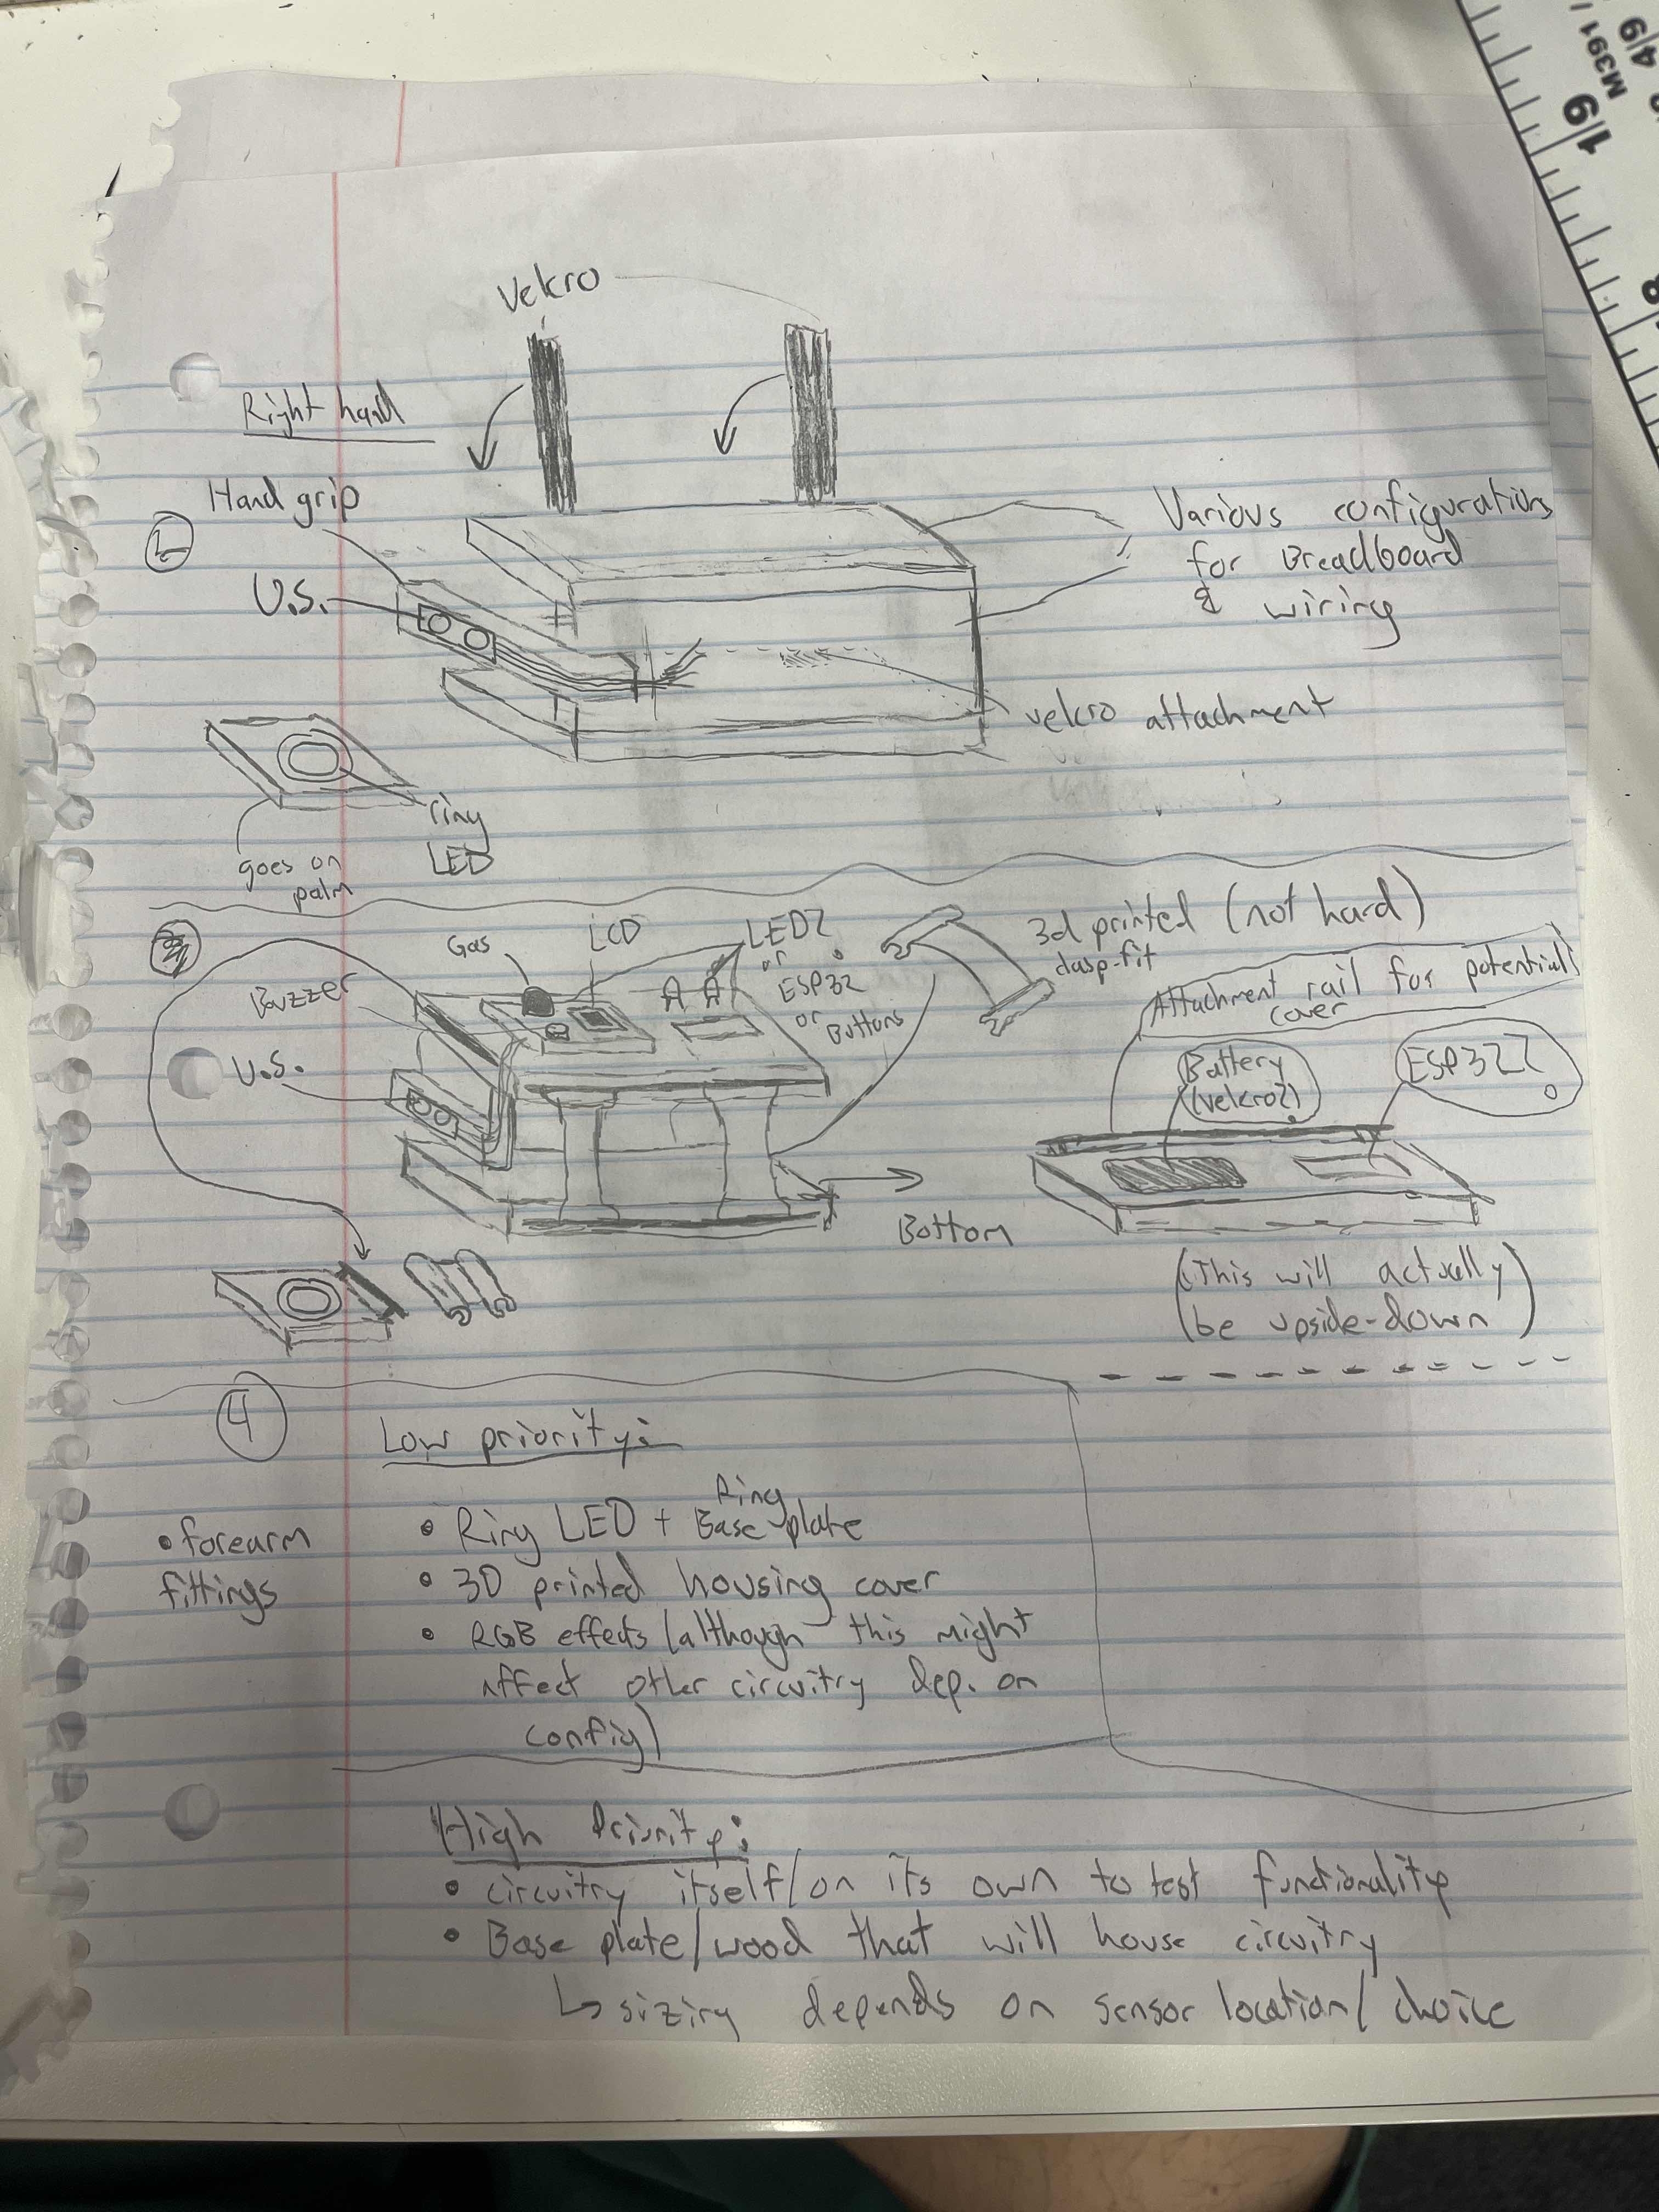 Velcro
Right hand
Hand grip
U.S.
Various configurations
for Breadboard
& wiring
velcro attachment
ring
LED
goes on
palm
Gas
LCD
LED?
or
ESP32
or
Buttons
3d printed (not hard)
clasp-fit
Attachment rail for potential
cover
Buzzer
U.S.
Battery
(velcro?)
ESP32?
Bottom
(This will actually
be upside-down)
4
Low priority:
• forearm
fittings
• Ring LED + Ring Base plate
• 3D printed housing cover
• RGB effects (although this might
affect other circuitry dep. on
config)
High Priority:
• circuitry itself/on its own to test functionality
• Base plate/wood that will house circuitry
↳ sizing depends on sensor location/choice
M391
19